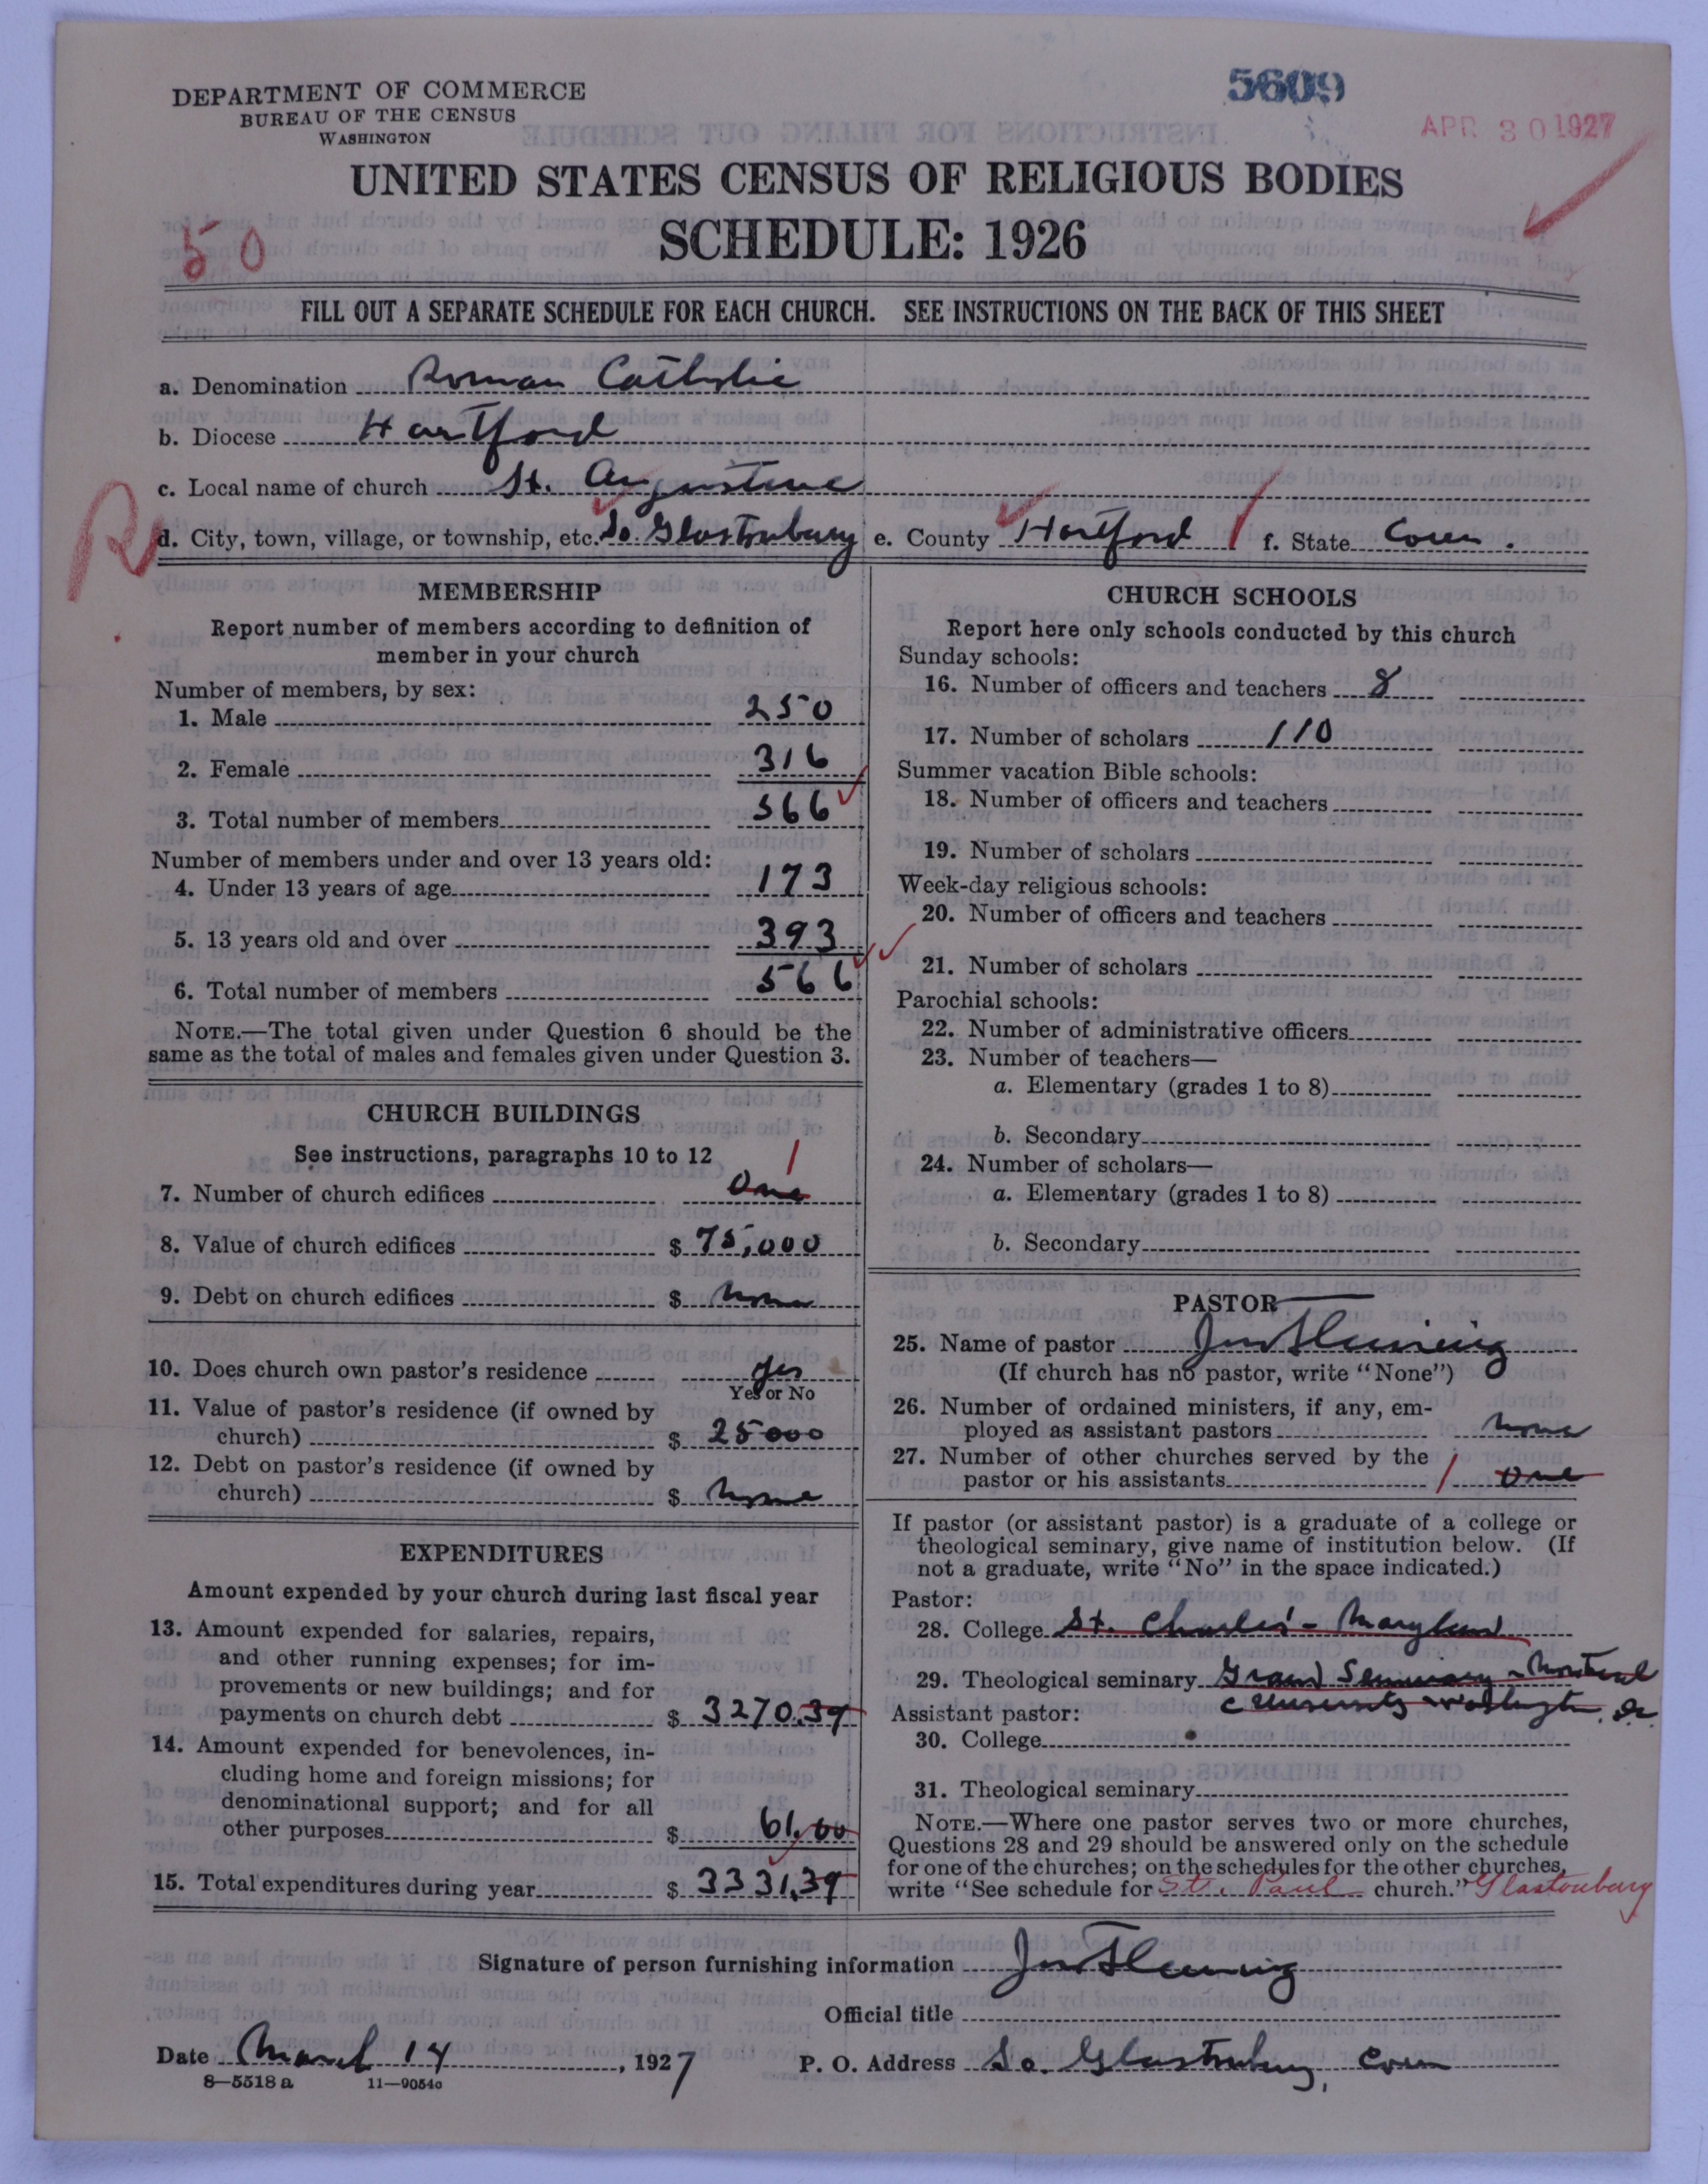 DEPARTMENT OF COMMERCE
BUREAU OF THE CENSUS
WASHINGTON
5609
APR 30 1927
UNITED STATES CENSUS OF RELIGIOUS BODIES
SCHEDULE: 1926
50
FILL OUT A SEPARATE SCHEDULE FOR EACH CHURCH. SEE INSTRUCTIONS ON THE BACK OF THIS SHEET
a. Denomination Roman Catholic
b. Diocese Hartford
c. Local name of church St. Augustine
R
d. City, town, village, or township, etc. So. Glastonbury e. County Hartford f. State Conn.
MEMBERSHIP
Report number of members according to definition of
member in your church
Number of members, by sex:
1. Male 250
2. Female 316
3. Total number of members 566
Number of members under and over 13 years old:
4. Under 13 years of age 173
5. 13 years old and over 393
6. Total number of members 566
NOTE.—The total given under Question 6 should be the
same as the total of males and females given under Question 3.
CHURCH BUILDINGS
See instructions, paragraphs 10 to 12
1
7. Number of church edifices One
8. Value of church edifices $ 75,000
9. Debt on church edifices $ None
10. Does church own pastor's residence yes
Yes or No
11. Value of pastor's residence (if owned by
church) $ 25000
12. Debt on pastor's residence (if owned by
church) $ None
EXPENDITURES
Amount expended by your church during last fiscal year
13. Amount expended for salaries, repairs,
and other running expenses; for im-
provements or new buildings; and for
payments on church debt $ 3270.39
14. Amount expended for benevolences, in-
cluding home and foreign missions; for
denominational support; and for all
other purposes $ 61.00
15. Total expenditures during year $ 3331.39
CHURCH SCHOOLS
Report here only schools conducted by this church
Sunday schools:
16. Number of officers and teachers 8
17. Number of scholars 110
Summer vacation Bible schools:
18. Number of officers and teachers
19. Number of scholars
Week-day religious schools:
20. Number of officers and teachers
21. Number of scholars
Parochial schools:
22. Number of administrative officers
23. Number of teachers—
a. Elementary (grades 1 to 8)
b. Secondary
24. Number of scholars—
a. Elementary (grades 1 to 8)
b. Secondary
PASTOR
25. Name of pastor Jno Fleming
(If church has no pastor, write "None")
26. Number of ordained ministers, if any, em-
ployed as assistant pastors None
27. Number of other churches served by the
pastor or his assistants 1 One
If pastor (or assistant pastor) is a graduate of a college or
theological seminary, give name of institution below. (If
not a graduate, write "No" in the space indicated.)
Pastor:
28. College St. Charles' - Maryland
29. Theological seminary Grand Seminary - Montreal
C University Washington, D.C.
Assistant pastor:
30. College
31. Theological seminary
NOTE.—Where one pastor serves two or more churches,
Questions 28 and 29 should be answered only on the schedule
for one of the churches; on the schedules for the other churches,
write "See schedule for St. Paul church." Glastonbury
Signature of person furnishing information Jno Fleming
Official title
Date March 14, 1927 P. O. Address So. Glastonbury, Conn
8—5518 a 11—9054a